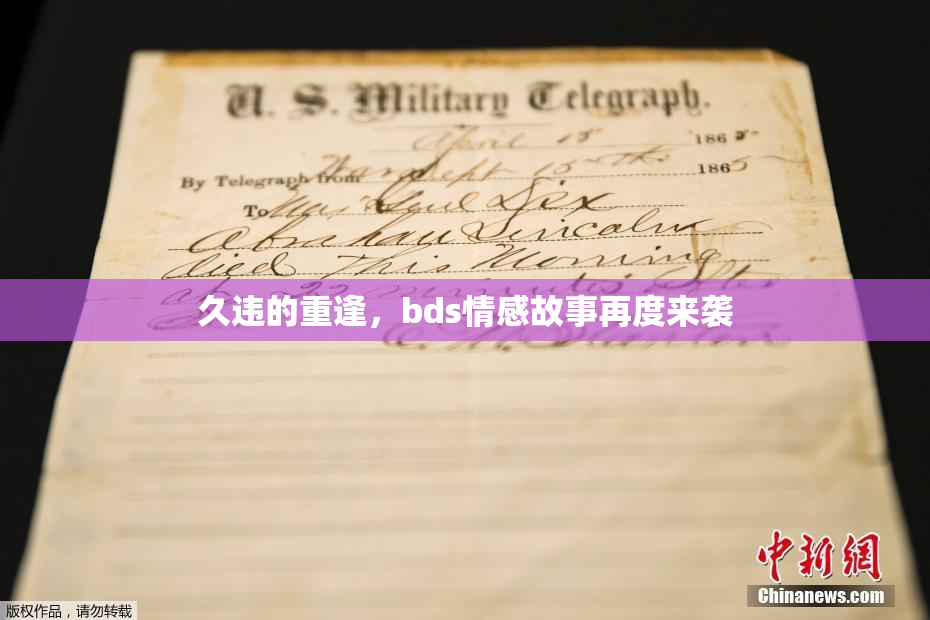 U. S. Military Telegraph.
April 15 1865
By Telegraph from War Dept 15th 1865
To Maj Genl Dix
Abraham Lincoln
died This Morning
at 22 minutes after
久违的重逢，bds情感故事再度来袭
中新网
Chinanews.com
版权作品，请勿转载